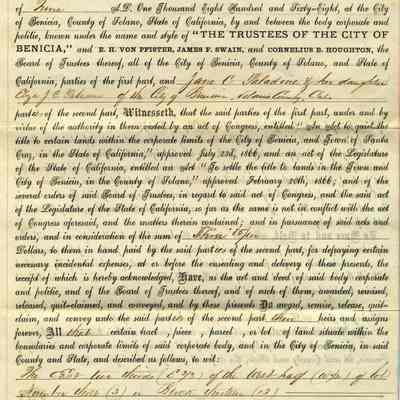 of June A.D. One Thousand Eight Hundred and Sixty-Eight, at the City
of Benicia, County of Solano, State of California, by and between the body corporate and
politic, known under the name and style of "THE TRUSTEES OF THE CITY OF
BENICIA," and E. H. VON PFISTER, JAMES F. SWAIN, and CORNELIUS B. HOUGHTON, the
Board of Trustees thereof, all of the City of Benicia, County of Solano, and State of
California, parties of the first part, and Jane C & her daughter
of the City of Solano County, Cal
parties of the second part, Witnesseth, that the said parties of the first part, under and by
virtue of the authority in them vested by an act of Congress, entitled "An act to quiet the
title to certain lands within the corporate limits of the City of Benicia, and Town of Santa
Cruz, in the State of California," approved July 23d, 1866, and an act of the Legislature
of the State of California, entitled an act "To settle the title to lands in the Town and
City of Benicia, in the County of Solano," approved February 20th, 1866; and of the
several orders of said Board of Trustees, in regard to said act of Congress, and the said act
of the Legislature of the State of California, so far as the same is not in conflict with the act
of Congress aforesaid, and the matters therein contained; and in pursuance of said acts and
orders, and in consideration of the sum of
Dollars, to them in hand paid by the said parties of the second part, for defraying certain
necessary incidental expenses, at or before the ensealing and delivery of these presents, the
receipt of which is hereby acknowledged, Have, as the act and deed of said body corporate
and politic, and of the Board of Trustees thereof, and of each of them, awarded, remised,
released, quit-claimed, and conveyed, and by these presents Do award, remise, release, quit-
claim, and convey unto the said parties of the second part their heirs and assigns
forever, All that certain tract, piece, parcel, or lot, of land situate within the
boundaries and corporate limits of said corporate body, and in the City of Benicia, in said
County and State, and described as follows, to wit:
The East two thirds (E 2/3) of the West half (W 1/2) of lot
Number (3) in Block (13)